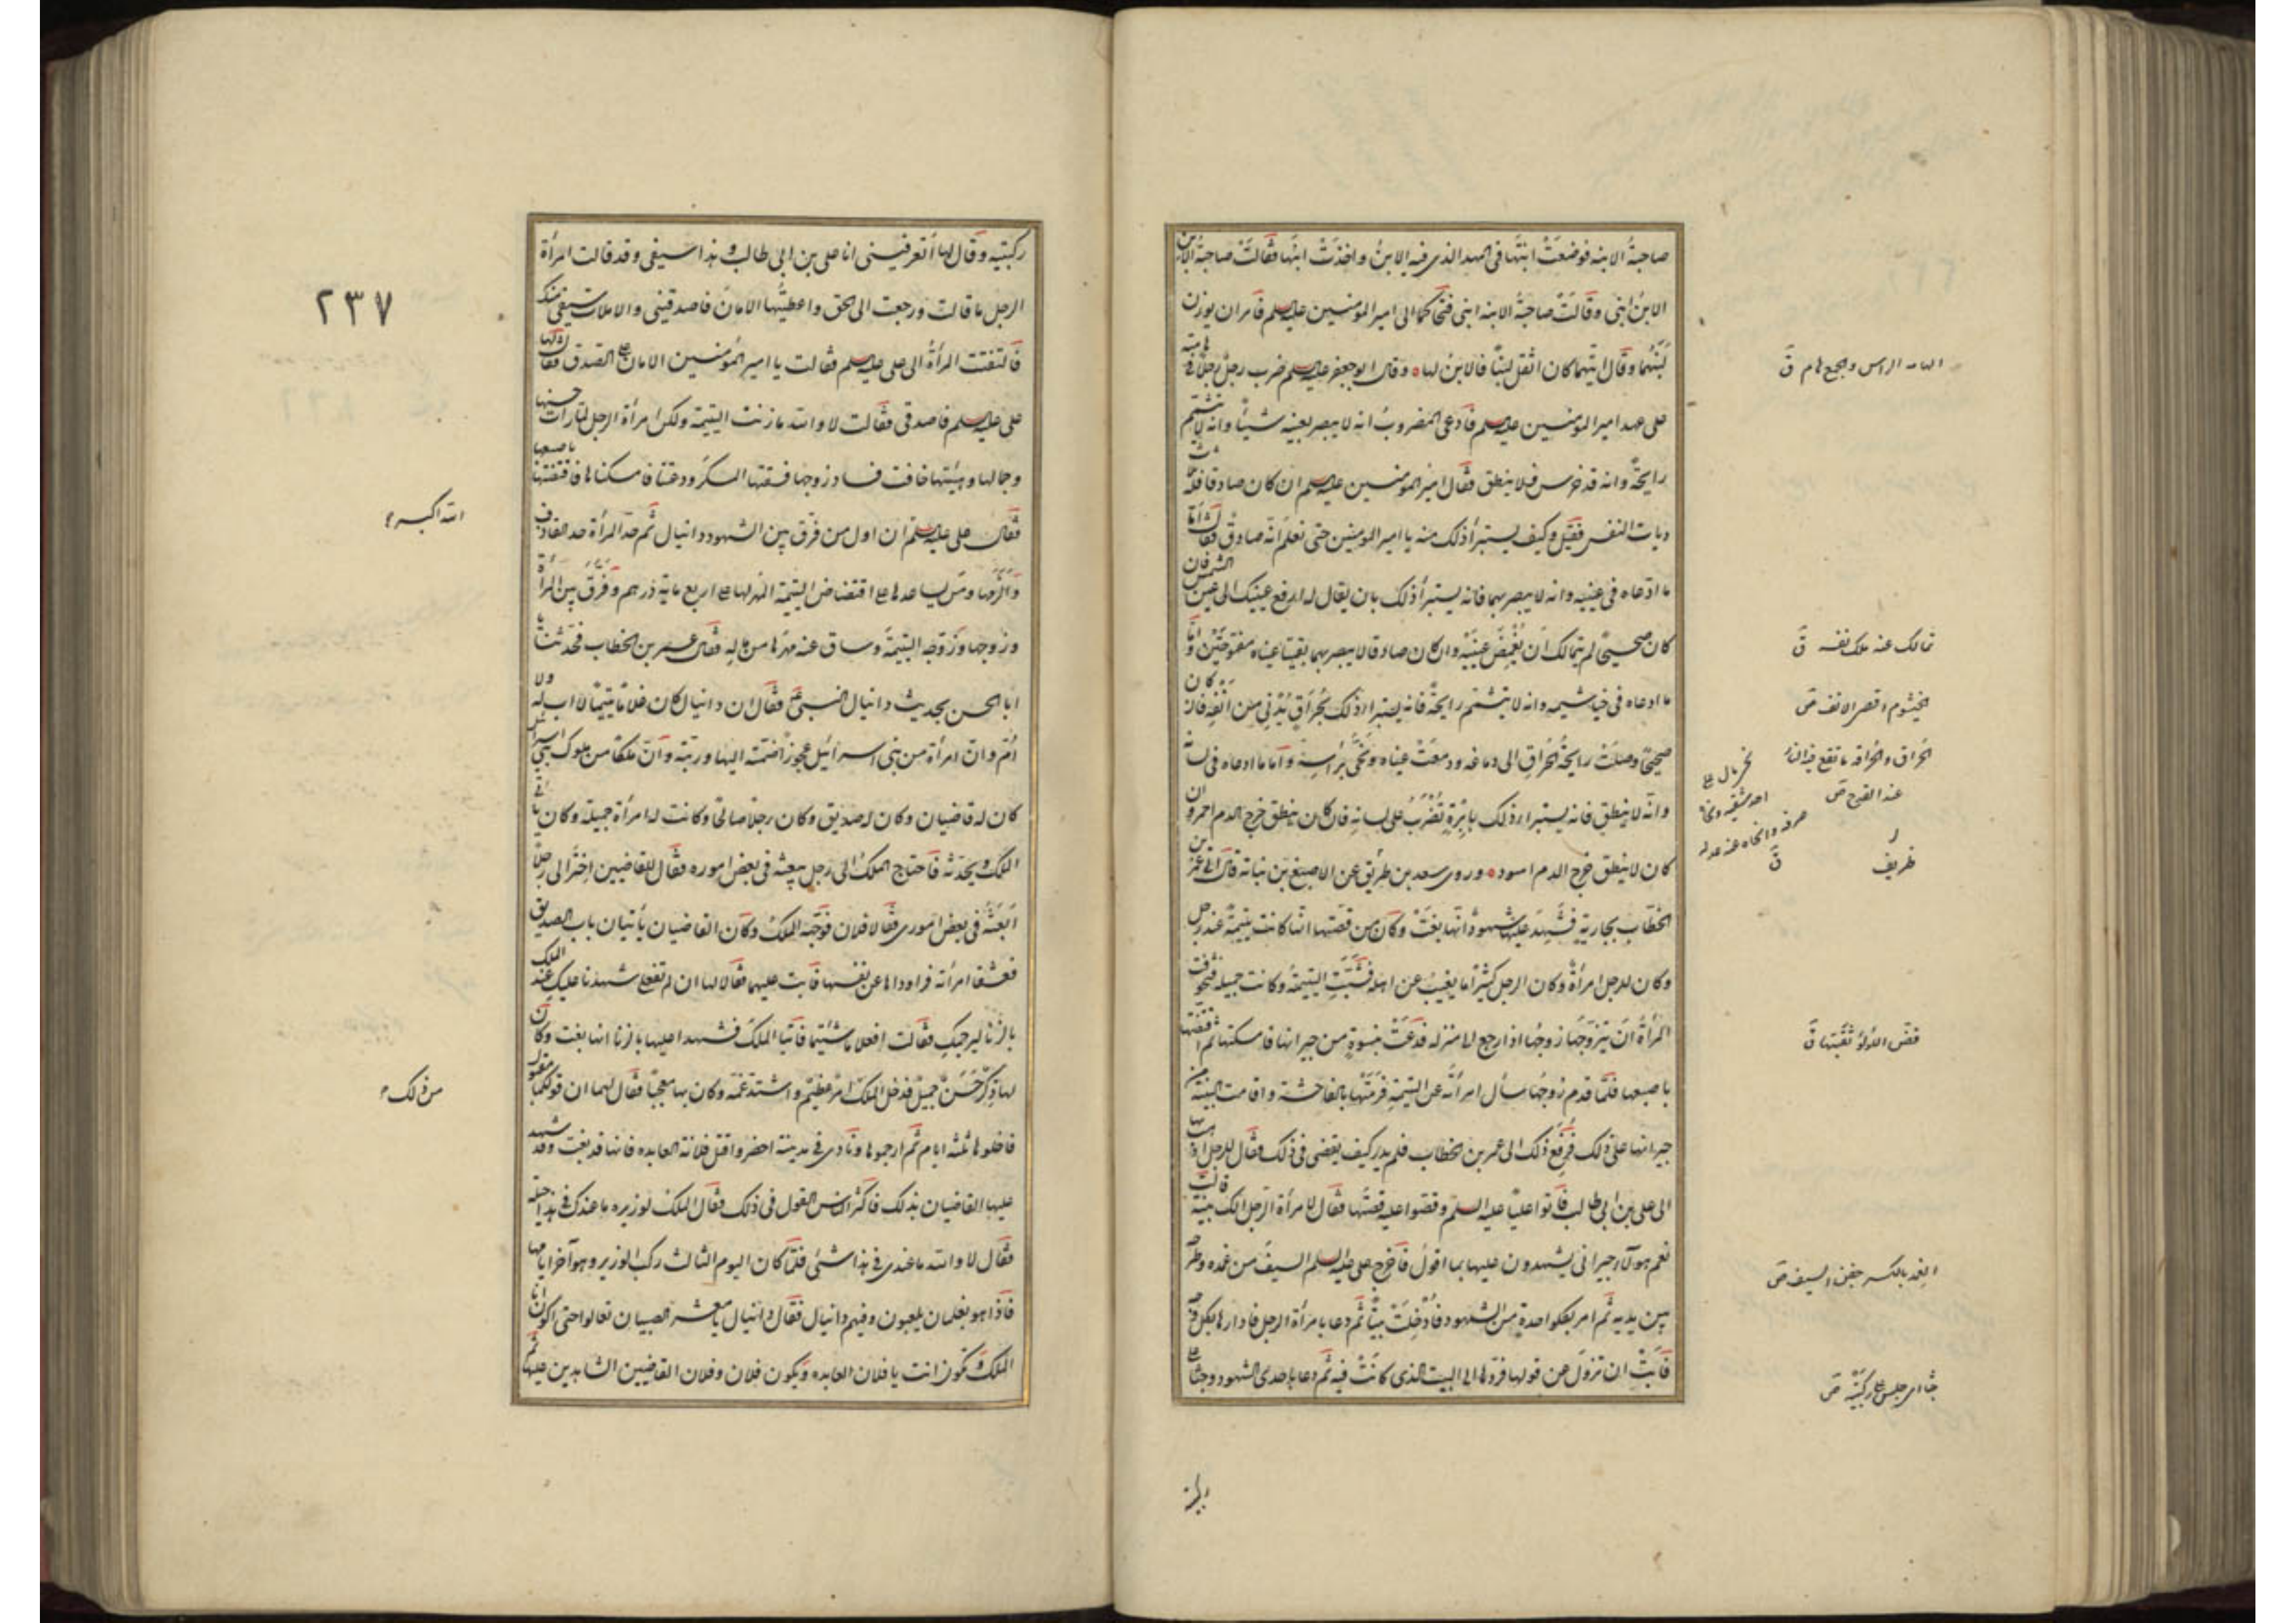 صاحبةُ الابنه فوضعَتْ ابنتَها فى المهد الذى فيه الابنُ واخذَتْ ابنَها فقالَتْ صاحبةُ الابن
الابنُ ابنى وقالَتْ صاحبةُ الابنه ابنى فتحاكما الى امير المؤمنين عليه السلم فامر ان يوزن
لَبَنُهما وقال ايّتهما كان اثقل لبنًا فالابنُ لها وقال ابو جعفر عليه السلم ضرب رجلٌ رجلًا فى هامته
على عهد امير المؤمنين عليه السلم فادعى المضروبُ انه لا يبصر بعينه شيئًا وانه لا يشتم
رايحةً وانه قد خرس فلا ينطق فقال امير المؤمنين عليه السلم ان كان صادقا فله ثلث
ديات النفس فقيل وكيف يستبرأ ذلك منه يا امير المؤمنين حتى نعلم انه صادقٌ فقال اما
ما ادعاه فى عينيه وانه لا يبصر بهما فانه يستبرأ ذلك بان يقال له ارفع عينيك الى عين الشمس فان
كان صحيحًا لم يتمالك ان يُغمِضَ عينيه وان كان صادقا لا يبصر بهما بقيتا عيناه مفتوحتين واما
ما ادعاه فى خياشيمه وانه لا يشتم رايحةً فانه يستبرا ذلك بحُراقٍ يُدنى من انفه فان كان
صحيحًا وصلَتْ رايحةُ الحُراقِ الى دماغه ودمعَتْ عيناه ونحّى برأسه واما ما ادعاه فى لسانه
وانه لا ينطق فانه يستبرا ذلك بابرةٍ تُضرَبُ على لسانه فان كان ينطق خرج الدم احمر وان
كان لا ينطق خرج الدم اسود وروى سعد بن طريق عن الاصبغ بن نباته قال اتى عمر بن
الخطاب بجاريةٍ فشهد عليها شهودٌ انها بغَتْ وكان من قصتها انها كانت يتيمةً عند رجل
وكان للرجل امرأةٌ وكان الرجل كثيرًا ما يغيبُ عن اهله فشبّتِ اليتيمةُ وكانت جميلة فتخوفت
المرأةُ ان يتزوجَها زوجُها اذا رجع الى منزله فدعَتْ بنسوةٍ من جيرانها فامسكنها ثم اقتضتها
باصبعها فلمّا قدم زوجُها سأل امرأتَه عن اليتيمة فرمَتْها بالفاحشة واقامت البينة من
جيرانها على ذلك فرُفِعَ ذلك الى عمر بن الخطاب فلم يدر كيف يقضى فى ذلك فقال للرجل اذهب بها
الى على بن ابى طالب فاتوا عليًا عليه السلم وقصوا عليه قصتَها فقال لامرأة الرجل الكِ بينة قالت
نعم هؤلاء جيرانى يشهدون عليها بما اقول فاخرج على عليه السلم السيفَ من غمده وطرحه
بين يديه ثم امر بكل واحدة من الشهود فأُدخلَتْ بيتًا ثم دعا بامرأة الرجل فادارها بكل وجه
فابَتْ ان تزول عن قولها فردّها الى البيت الذى كانَتْ فيه ثم دعا باحدى الشهود وجثا على
الهامه الراس والجمع هام ق
تمالك عنه ملك نفسه ق
الخيشوم اقصى الانف ص
الحُراق والحُراقه ما تقع فيه النار
عند القدح ص
ظريف
قضّ اللؤلؤ ثقبتها ق
الغِمد بالكسر جفن السيف ص
جثا اى جلس على ركبتيه ص
ركبتيه وقال لها أتعرفيننى انا على بن ابى طالب وهذا سيفى وقد قالت امرأة
الرجل ما قالت ورجعت الى الحق واعطيتُها الامانَ فاصدقينى والا ملأت سيفى منك
فالتفتت المرأةُ الى على عليه السلم فقالت يا امير المؤمنين الامان على الصدق فقال لها
على عليه السلم فاصدقى فقالت لا والله ما زنت اليتيمة ولكن امرأة الرجل لما رات حسنها
وجمالها وهيئتها خافت فساد زوجها فسقتها المسكر ودعتنا فامسكناها فاقتضتها باصبعها
فقال على عليه السلم ان اول من فرّق بين الشهود دانيال ثم حدّ المرأة حد القاذف
والزمها ومن ساعدها على اقتضاض اليتيمة المهر لها على اربع ماية درهم وفرّق بين المرأة
وزوجها وزوّجه اليتيمةَ وساق عنه مهرَها من ماله فقال عمر بن الخطاب فحدثنا يا
ابا الحسن بحديث دانيال النبىّ فقال ان دانيال كان غلامًا يتيمًا لا اب له ولا
اُمّ وان امرأة من بنى اسرائيل عجوزًا ضمّته اليها وربّته وانّ ملكًا من ملوك بنى اسرائيل
كان له قاضيان وكان له صديق وكان رجلا صالحًا وكانت له امرأة جميلة وكان ياتى
الملك ويحدثه فاحتاج الملك الى رجل يبعثه فى بعض اموره فقال للقاضيين اختارا لى رجلًا
ابعثه فى بعض امورى فقالا فلان فوجّهه الملكُ وكان القاضيان يأتيان باب الصديق
فعشقا امرأته فراوداها عن نفسها فابت عليهما فقالا لها ان لم تفعلى شهدنا عليكِ عند الملك
بالزنا ليرجمكِ فقالت افعلا ما شئتما فاتيا الملك فشهدا عليها بالزنا انها بغت وكان
لها ذِكرٌ حَسَنٌ جميلٌ فدخل الملكَ امرٌ عظيمٌ واشتد غمّه وكان بها معجبًا فقال لهما ان قولكما مقبول
فاجلوها ثلثه ايام ثم ارجموها ونادى فى مدينته احضروا قتل فلانة العابده فانها قد بغت وقد شهد
عليها القاضيان بذلك فاكثر الناس القول فى ذلك فقال الملك لوزيره ما عندك فى هذا حيلة
فقال لا والله ما عندى فى هذا شئ فلمّا كان اليوم الثالث ركب الوزير وهو آخر ايامها
فاذا هو بغلمان يلعبون وفيهم دانيال فقال دانيال يا معشر الصبيان تعالوا حتى اكون انا
الملك وتكون انت يا فلان العابده ويكون فلان وفلان القاضيين الشاهدين عليها ثم
٢٣٧
الله اكبر
من ذلك